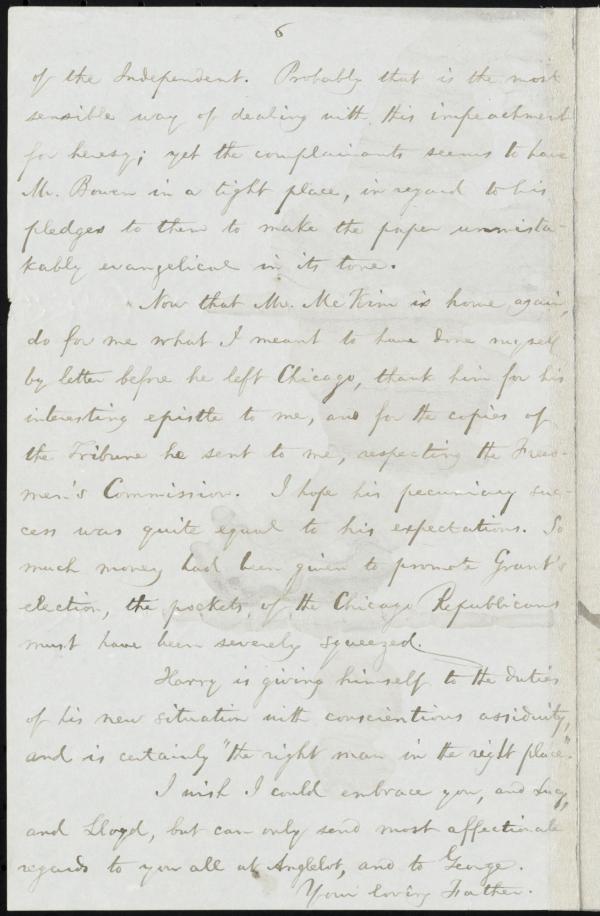 6
of the Independent. Probably that is the most
sensible way of dealing with this impeachment
for heresy; yet the complainants seems to have
Mr. Bowen in a tight place, in regard to his
pledges to them to make the paper unmista-
kably evangelical in its tone.
Now that Mr. McKim is home again,
do for me what I meant to have done myself
by letter before he left Chicago, thank him for his
interesting epistle to me, and for the copies of
the Tribune he sent to me, respecting the Freed-
men's Commission. I hope his pecuniary suc-
cess was quite equal to his expectations. So
much money had been given to promote Grant's
election, the pockets of the Chicago Republicans
must have been severely squeezed.
Harry is giving himself to the duties
of his new situation with conscientious assiduity,
and is certainly "the right man in the right place".
I wish I could embrace you, and Lucy,
and Lloyd, but can only send most affectionate
regards to you all at and to George.
Your loving Father.